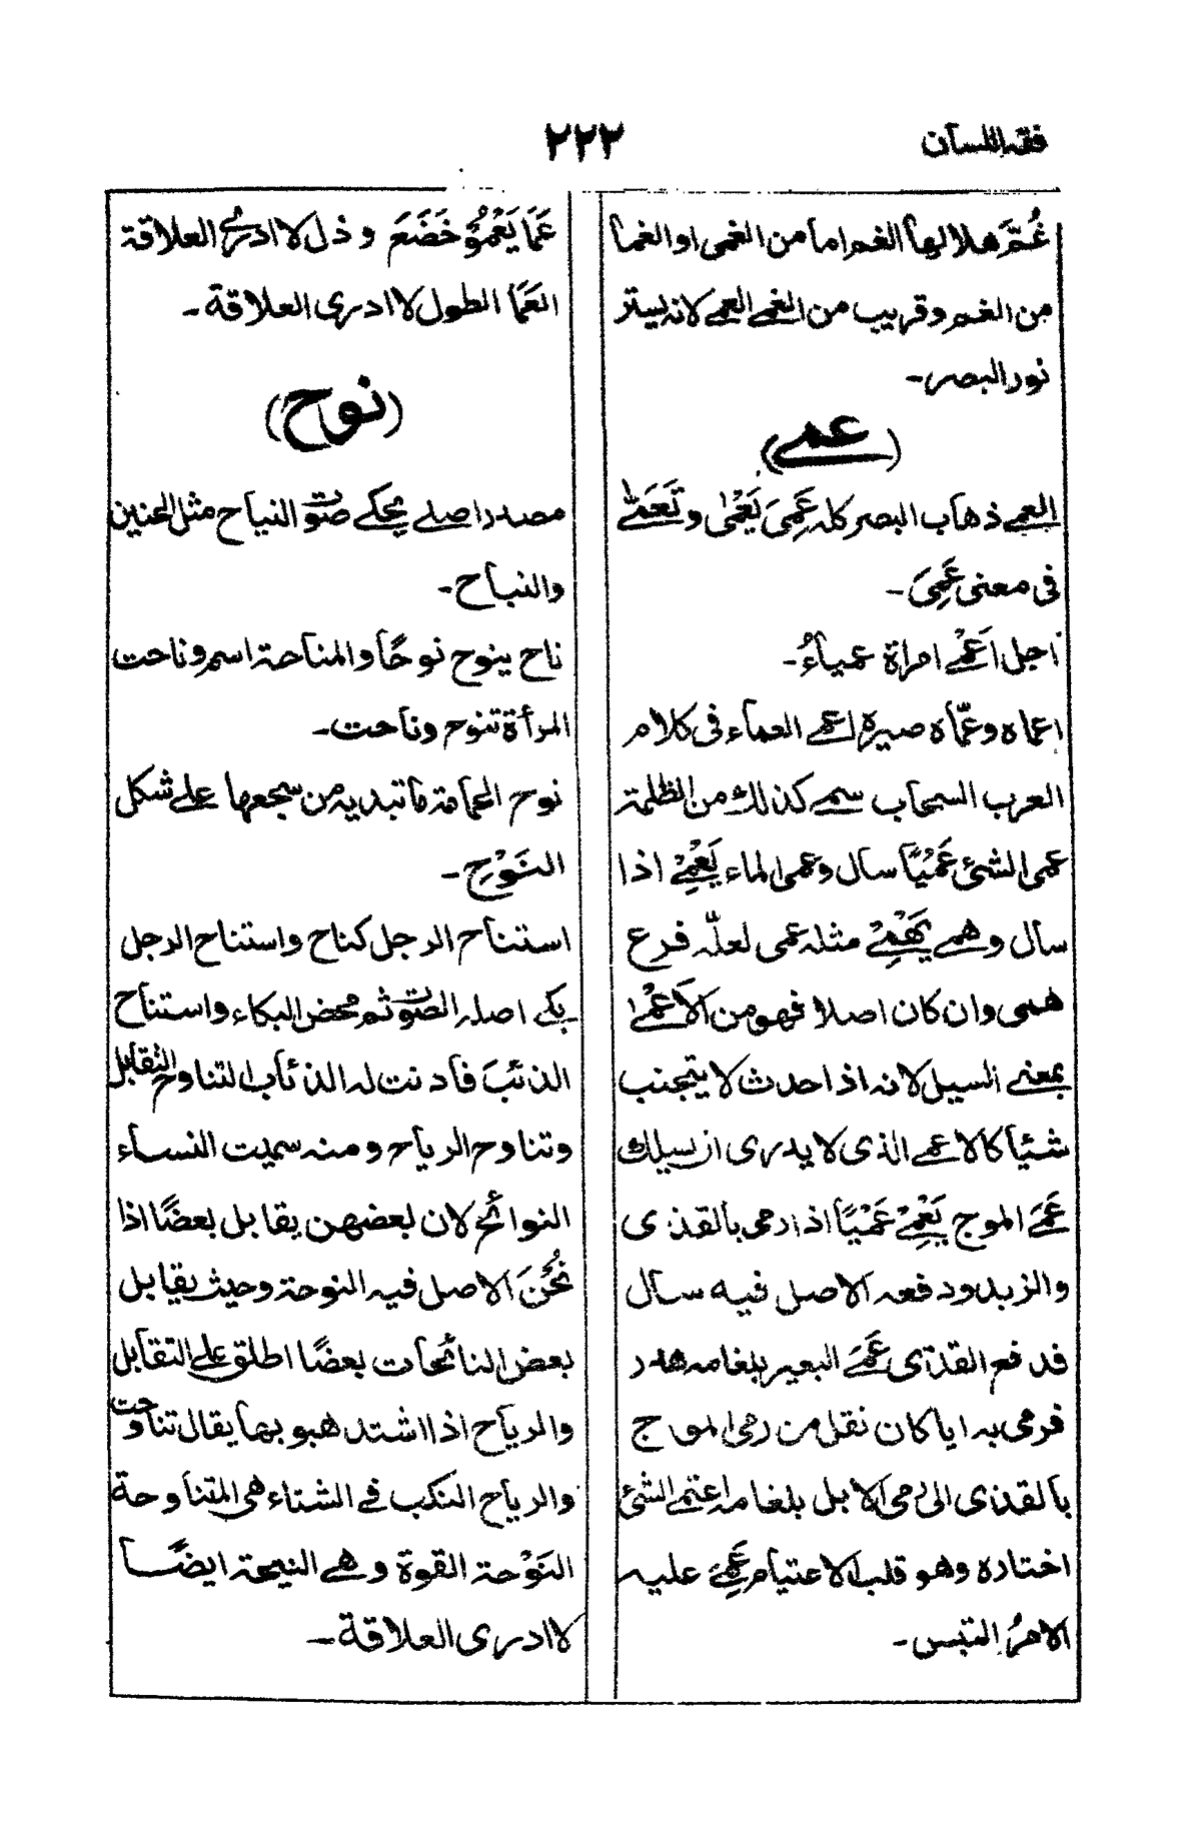 فقه اللسان
٢٢٢
غُمَّ هلالها الغم اما من الغمى او الغما
من الغم وقريب من الغمي العمي لانه يستر
نور البصر-
(عمي)
العمي ذهاب البصر كله عَمِيَ يَعْمٰى وتَعَمّٰي
فى معنى عَمِيَ-
اجل اَعْمٰے امراة عمياءُ-
اعماه وعمّاه صيره اعمے العماء فى كلام
العرب السحاب سمے كذلك من الظلمة
عمى الشئ عَمْيًا سال وعمى الماء يَعْمِيْ اذا
سال وهمے يَهْمِيْ مثله عمى لعلّه فرع
همى وان كان اصلا فهو من الاَعْمٰے
بمعنے السيل لانه اذا حدث لا يتجنب
شئيا كالاعمے الذى لا يدرى از يسلك
عَمَے الموج يَعْمِيْ عَمْيًا اذا رمى بالقذى
والزبد ودفعه الاصل فيه سال
فدفع القذى عَمَے البعير بلغامه هدر
فرمى به ايا كان نقل من رمى الموج
بالقذى الى رمى الابل بلغامه اعتمے الشئ
اختاره وهو قلب الاعتيام عَمِيَ عليه
الامرُ التبس-
عَمَا يَعْمُوْ خَضَعَ وذل لا ادرے العلاقة
العَمَا الطول لا ادرى العلاقة-
(نوح)
مصدر اصلے يحكے صوت النياح مثل الحنين
والنباح-
ناح ينوح نوحًا والمناحة اسم وناحت
المرأة تنوح وناحت-
نوح الحمامة ما تبديه من سجعها علے شكل
النَوْحِ-
استناح الرجل كناح واستناح الرجل
بكے اصله الصوت ثم محض البكاء واستناح
الذئبَ فادنت له الذئاب التناوح التقابل
وتناوح الرياح ومنه سميت النساء
النوائح لان بعضهن يقابل بعضًا اذا
نُحْنَ الاصل فيه النوحة وحيث يقابل
بعض النائحات بعضًا اطلق علے التقابل
والرياح اذا اشتد هبوبها يقال تناوحت
والرياح النكب فے الشتاء هى المتناوحة
النَوْحة القوة وهے النيحة ايضًا
لا ادرى العلاقة-